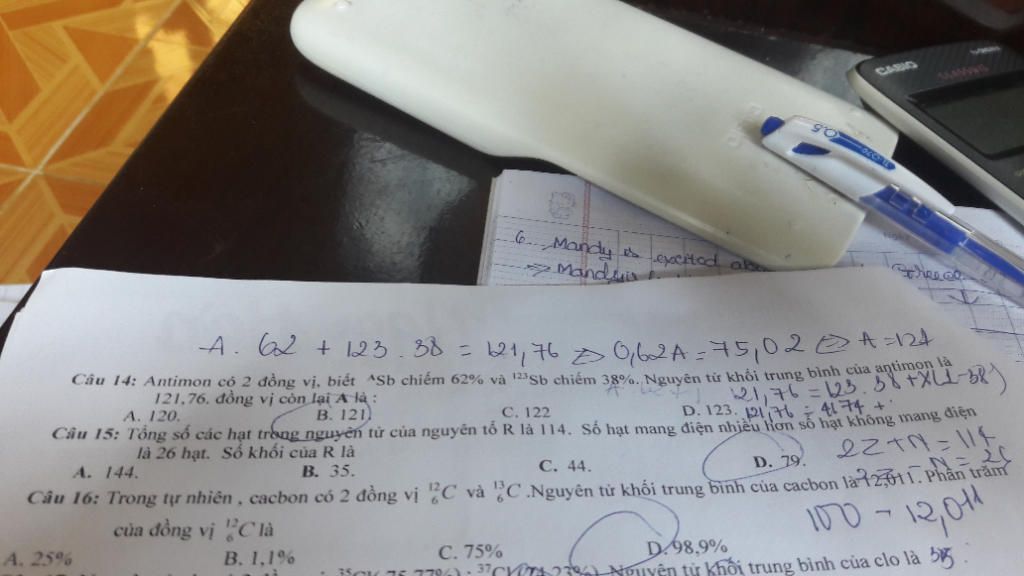 CASIO
0.5
6. Mandy is excited
⇒ Mandy is
Greece
A. 62 + 123 . 38 = 121,76 ⇔ 0,62A = 75,02 ⇔ A = 121
Câu 14: Antimon có 2 đồng vị, biết ᴬSb chiếm 62% và ¹²³Sb chiếm 38%. Nguyên tử khối trung bình của antimon là
121,76. đồng vị còn lại A là :
121,76 = 123 . 38 + X(1-38)
A. 120. B. 121 C. 122 D. 123.
121,76 = 4674 +
Câu 15: Tổng số các hạt trong nguyên tử của nguyên tố R là 114. Số hạt mang điện nhiều hơn số hạt không mang điện
là 26 hạt. Số khối của R là
2Z + N = 114
A. 144. B. 35. C. 44. D. 79.
2Z - N = 26
Câu 16: Trong tự nhiên , cacbon có 2 đồng vị ¹²₆C và ¹³₆C .Nguyên tử khối trung bình của cacbon là 12,011. Phần trăm
của đồng vị ¹²₆C là
100 - 12,011
A. 25% B. 1,1% C. 75% D. 98,9%
³⁵Cl( 75,77%) ; ³⁷Cl(24,23%). Nguyên tử khối trung bình của clo là